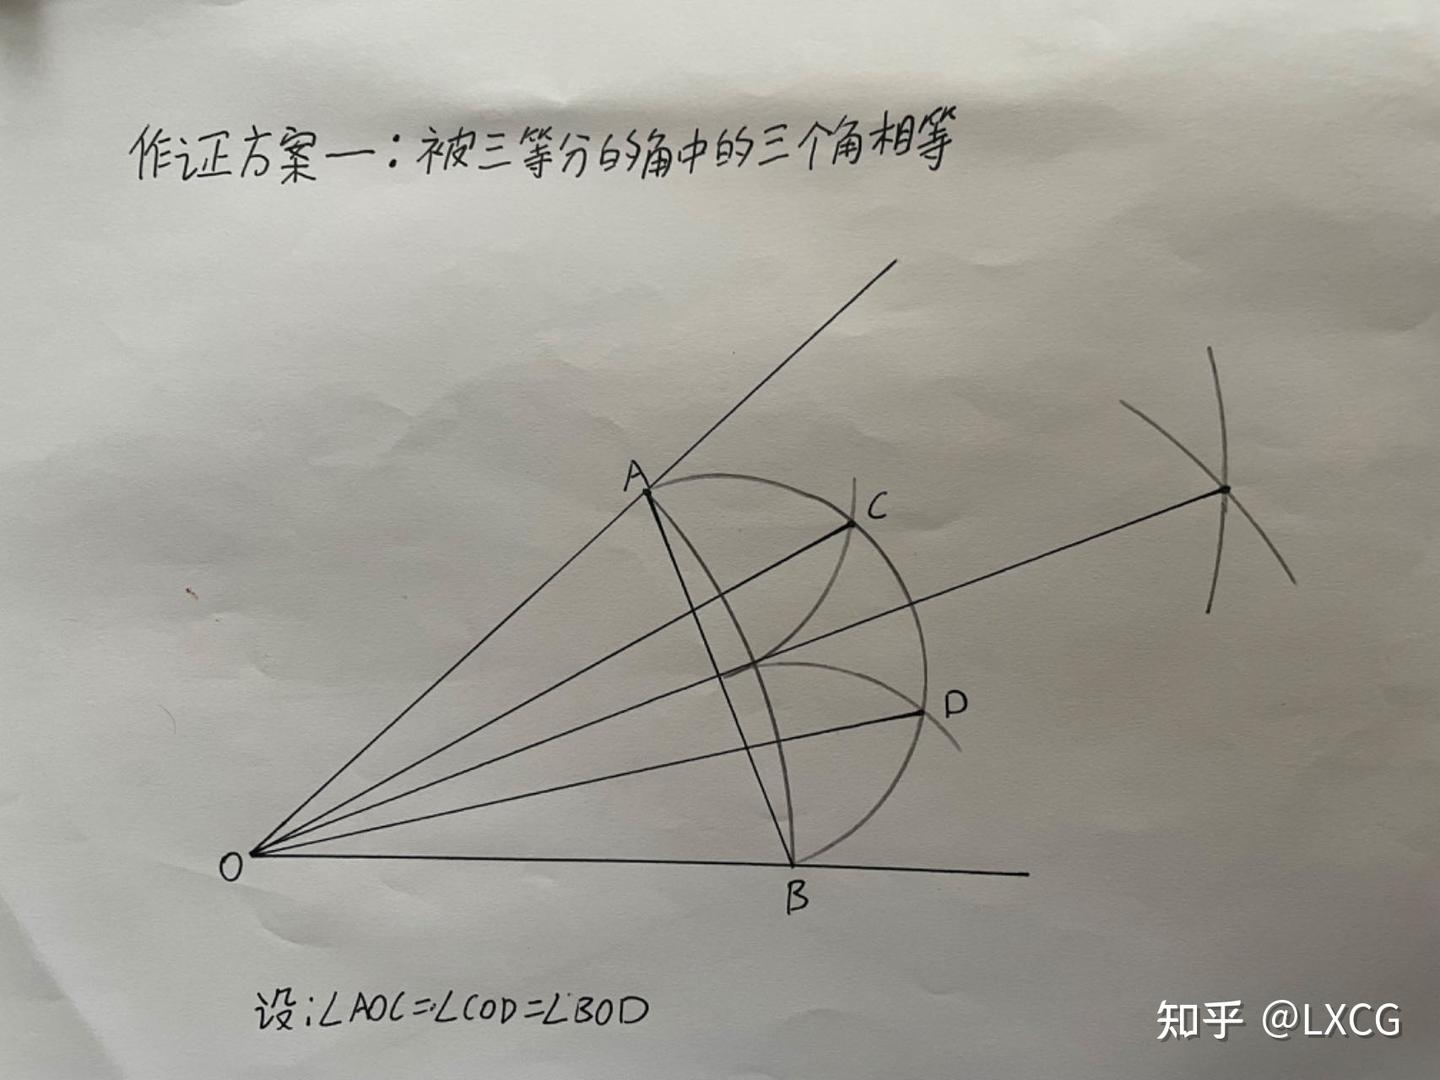 作证方案一：被三等分的角中的三个角相等
A
C
D
O
B
设：∠AOC=∠COD=∠BOD
知乎 @LXCG